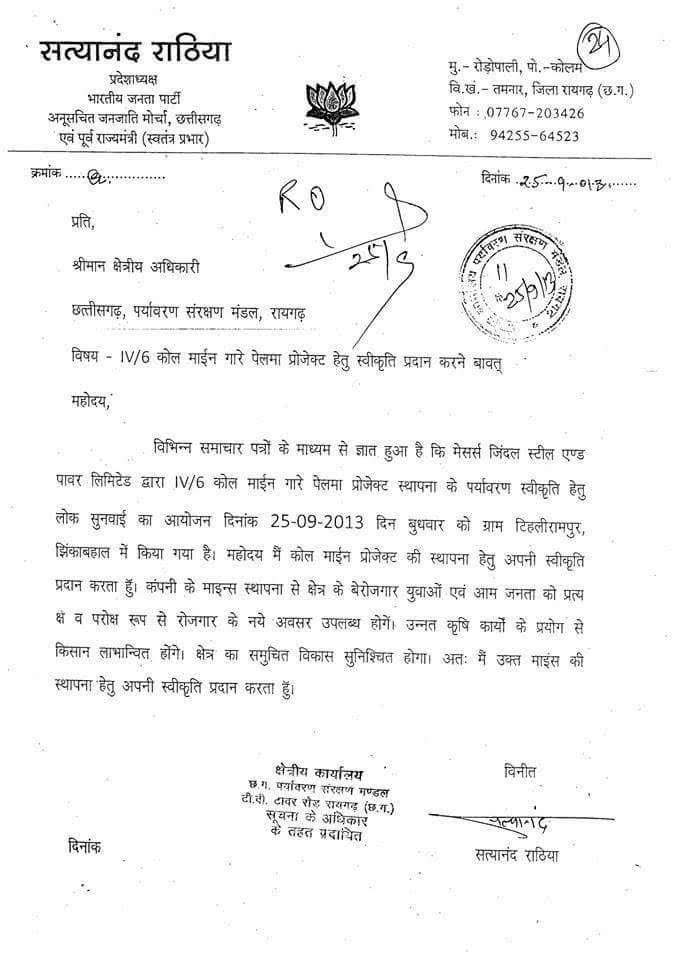 24
सत्यानंद राठिया
प्रदेशाध्यक्ष
भारतीय जनता पार्टी
अनूसचित जनजाति मोर्चा, छत्तीसगढ़
एवं पूर्व राज्यमंत्री (स्वतंत्र प्रभार)
मु.- रोड़ोपाली, पो.-कोलम
वि.खं.- तमनार, जिला रायगढ़ (छ.ग.)
फोन : 07767-203426
मोब.: 94255-64523
क्रमांक ..................
दिनांक .25...9...013.......
RO
25/9
प्रति,
श्रीमान क्षेत्रीय अधिकारी
छत्तीसगढ़, पर्यावरण संरक्षण मंडल, रायगढ़
पर्यावरण संरक्षण मंडल रायगढ़
11
25/9/13
विषय - IV/6 कोल माईन गारे पेलमा प्रोजेक्ट हेतु स्वीकृति प्रदान करने बावत्
महोदय,
विभिन्न समाचार पत्रों के माध्यम से ज्ञात हुआ है कि मेसर्स जिंदल स्टील एण्ड
पावर लिमिटेड द्वारा IV/6 कोल माईन गारे पेलमा प्रोजेक्ट स्थापना के पर्यावरण स्वीकृति हेतु
लोक सुनवाई का आयोजन दिनांक 25-09-2013 दिन बुधवार को ग्राम टिहलीरामपुर,
झिंकाबहाल में किया गया है। महोदय मैं कोल माईन प्रोजेक्ट की स्थापना हेतु अपनी स्वीकृति
प्रदान करता हॅु। कंपनी के माइन्स स्थापना से क्षेत्र के बेरोजगार युवाओं एवं आम जनता को प्रत्य
क्ष व परोक्ष रूप से रोजगार के नये अवसर उपलब्ध होगें। उन्नत कृषि कार्यो के प्रयोग से
किसान लाभान्वित होंगे। क्षेत्र का समुचित विकास सुनिश्चित होगा। अतः मैं उक्त माइंस की
स्थापना हेतु अपनी स्वीकृति प्रदान करता हॅु।
क्षेत्रीय कार्यालय
छ.ग. पर्यावरण संरक्षण मण्डल
टी.वी. टावर रोड़ रायगढ़ (छ.ग.)
सूचना के अधिकार
के तहत प्रदायित
विनीत
सत्यानंद
सत्यानंद राठिया
दिनांक